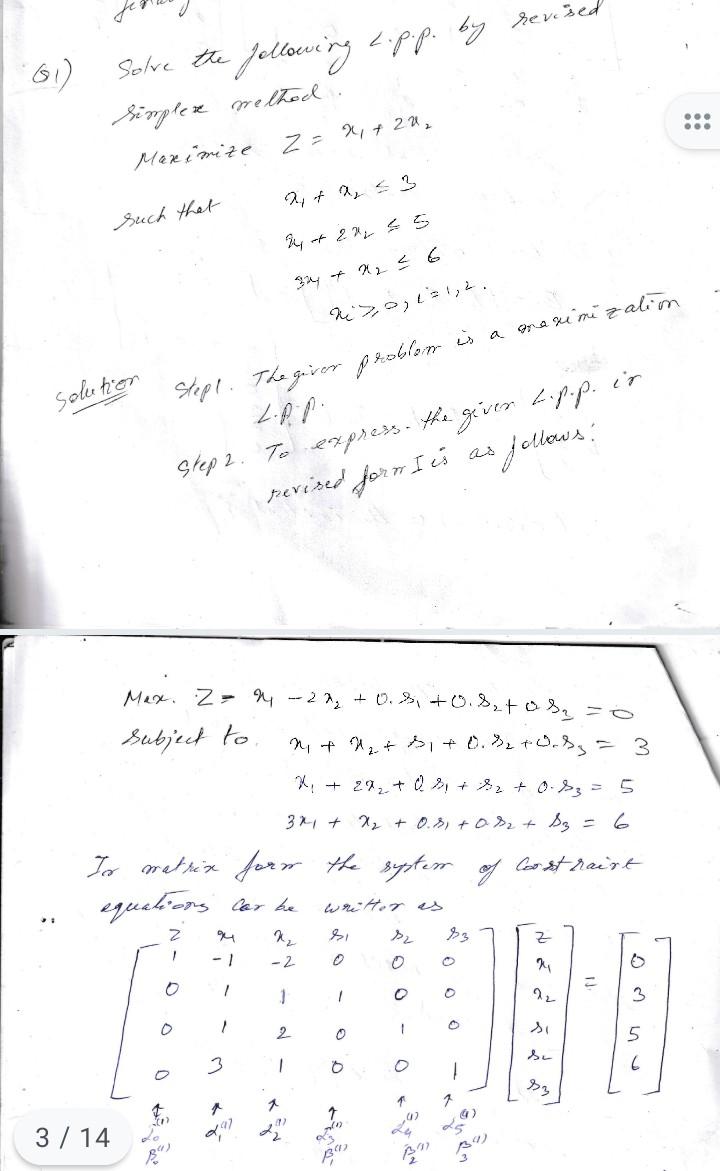 Q1) Solve the following L.P.P. by revised
simplex method.
Maximize Z = x₁ + 2x₂
such that x₁ + x₂ ≤ 3
x₁ + 2x₂ ≤ 5
3x₁ + x₂ ≤ 6
xi ≥ 0, i = 1, 2.
Solution Step 1. The given problem is a maximization
L.P.P.
Step 2. To express the given L.P.P. in
revised form I is as follows:
Max. Z = x₁ - 2x₂ + 0.s₁ + 0.s₂ + 0.s₃ = 0
Subject to x₁ + x₂ + s₁ + 0.s₂ + 0.s₃ = 3
x₁ + 2x₂ + 0.s₁ + s₂ + 0.s₃ = 5
3x₁ + x₂ + 0.s₁ + 0.s₂ + s₃ = 6
In matrix form the system of constraint
equations can be written as
Z x₁ x₂ s₁ s₂ s₃
1 -1 -2 0 0 0 Z 0
0 1 1 1 0 0 x₁ 3
0 1 2 0 1 0 x₂ = 5
0 3 1 0 0 1 s₁ 6
s₂
s₃
↑ ↑ ↑ ↑ ↑ ↑
α₀⁽¹⁾ α₁⁽¹⁾ α₂⁽¹⁾ α₃⁽¹⁾ α₄⁽¹⁾ α₅⁽¹⁾
β₀⁽¹⁾ β₁⁽¹⁾ β₂⁽¹⁾ β₃⁽¹⁾
3 / 14